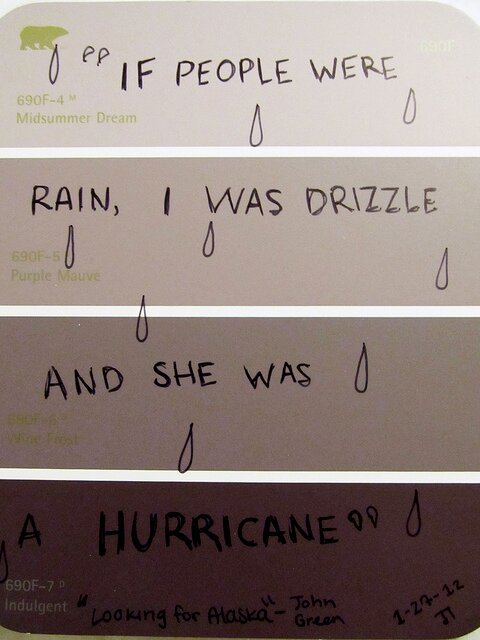 690F
"IF PEOPLE WERE
690F-4 M
Midsummer Dream
RAIN, I WAS DRIZZLE
690F-5
Purple Mauve
AND SHE WAS
690F-6
Wine Frost
A HURRICANE"
690F-7 D
Indulgent
"Looking for Alaska" - John Green
1-27-12